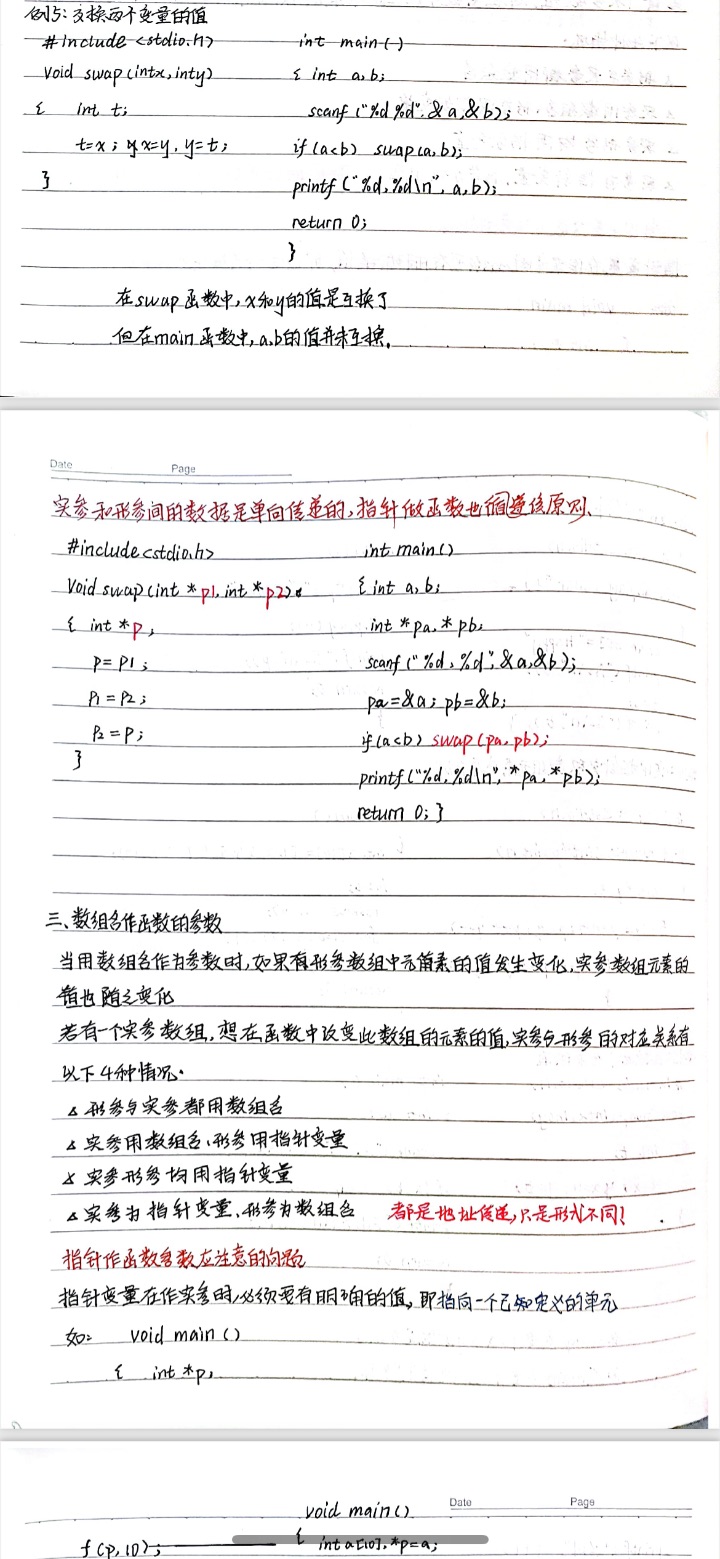 例5:交换两个变量的值
#include <stdio.h> int main()
void swap(intx,inty) { int a,b;
{ int t; scanf ("%d %d",&a,&b);
t=x; x=y, y=t; if (a<b) swap(a,b);
} printf ("%d,%d\n", a,b);
return 0;
}
在swap函数中,x和y的值是互换了
但在main函数中,a,b的值并未互换.
Date Page
实参和形参间的数据是单向传递的,指针做函数也遵该原则、
#include<stdio.h> int main()
void swap(int *p1, int *p2) { int a,b;
{ int *p, int *pa,*pb;
p=p1; scanf ("%d,%d",&a,&b);
p1=p2; pa=&a; pb=&b;
p2=p; if(a<b) swap(pa,pb);
} printf("%d,%d\n",*pa,*pb);
return 0; }
三、数组名作函数的参数
当用数组名作为参数时,如果有形参数组中元素的值发生变化,实参数组元素的
值也随之变化
若有一个实参数组,想在函数中改变此数组的元素的值,实参与形参的对应关系有
以下4种情况.
△ 形参与实参都用数组名
△ 实参用数组名、形参用指针变量
△ 实参形参均用指针变量
△ 实参为指针变量、形参为数组名 都是地址传递,只是形式不同!
指针作函数参数应注意的问题
指针变量在作实参时,必须要有明确的值,即指向一个已知定义的单元
如: void main()
{ int *p,
void main() Date Page
f(p,10); { int a[10],*p=a;